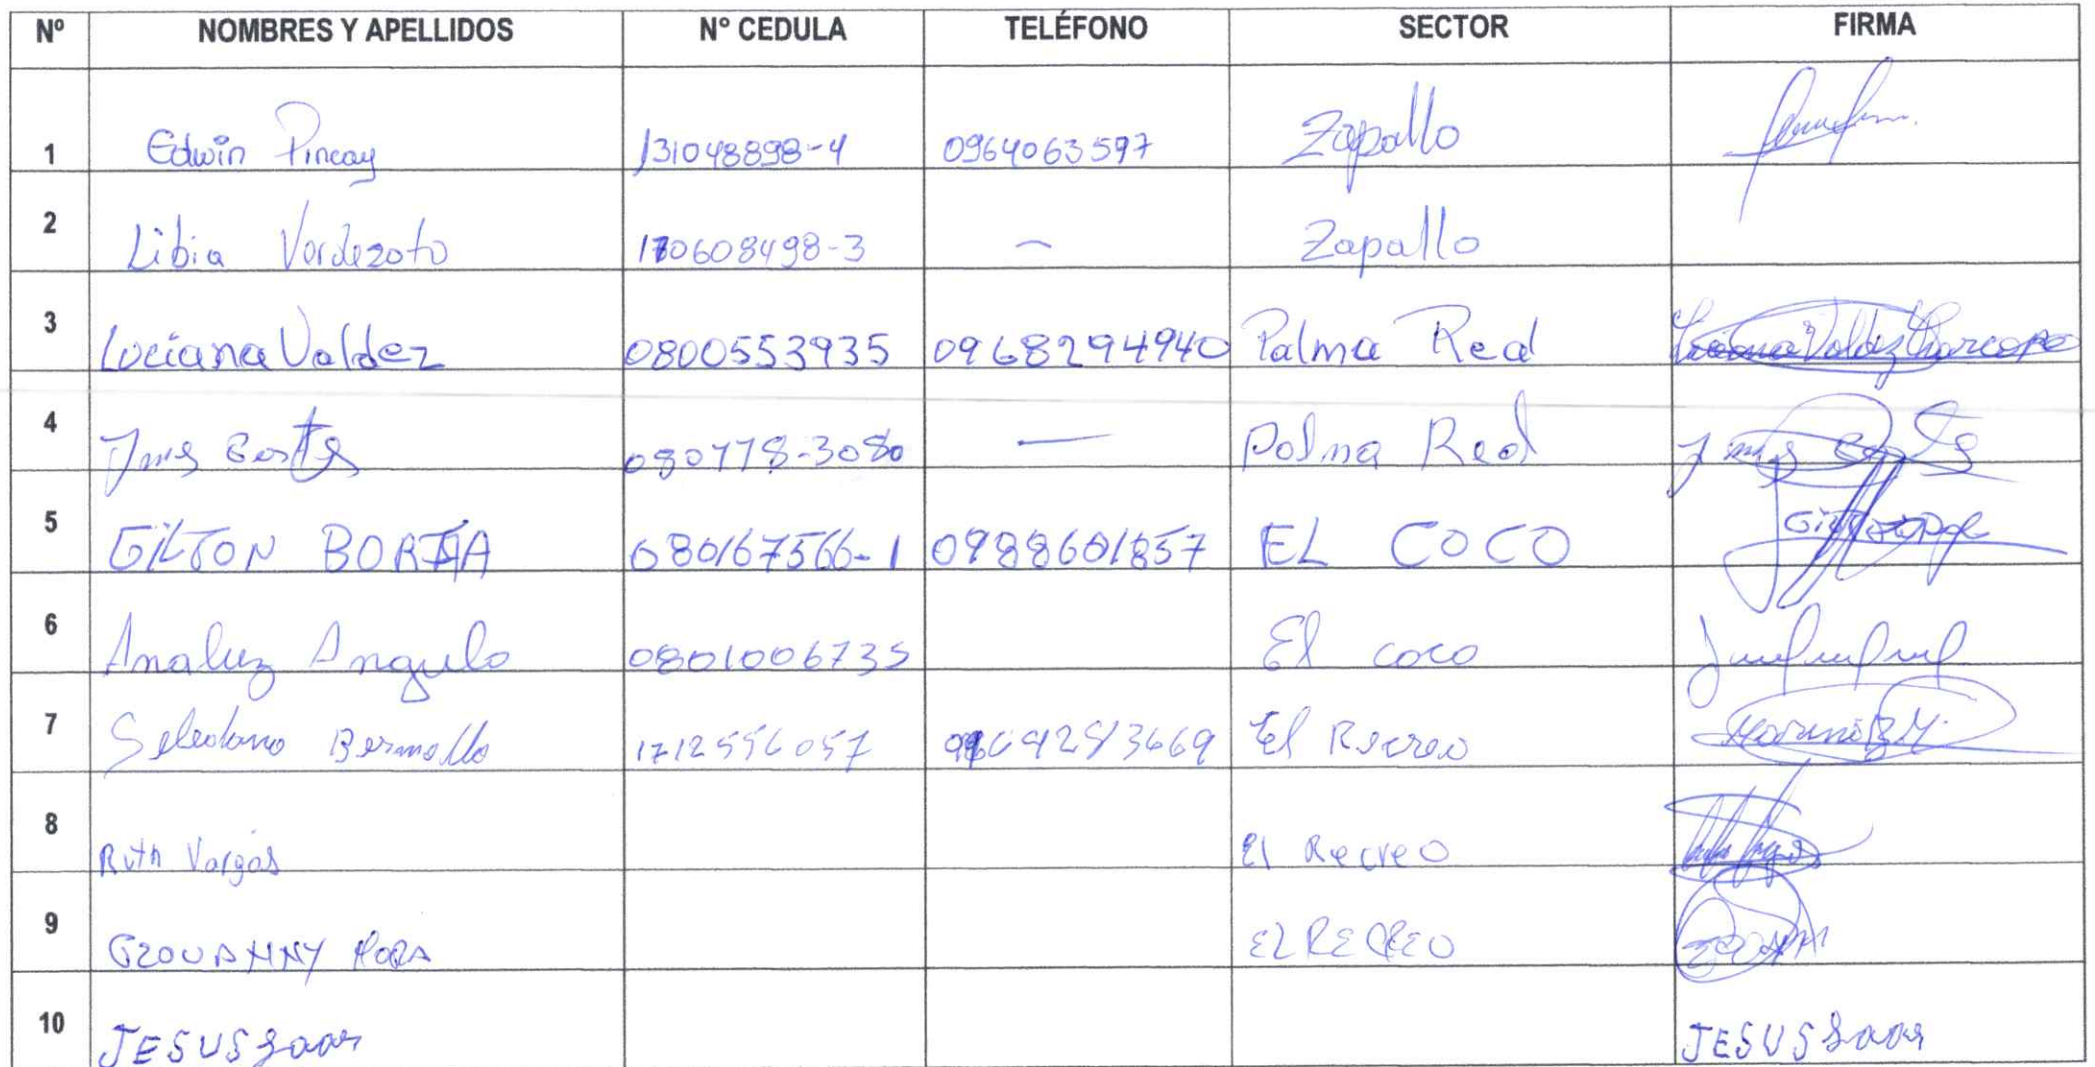 Nº NOMBRES Y APELLIDOS Nº CEDULA TELÉFONO SECTOR FIRMA
1 Edwin Pincay 131048898-4 0964063597 Zapallo
2 Libia Verdezoto 170608498-3 — Zapallo
3 Luciana Valdez 0800553935 0968294940 Palma Red Valdez
4 080778-3080 — Palma Red
5 GILTON BORJA 080167566-1 0988601857 EL COCO
6 Analuz Angulo 0801006735 El coco
7 Bermello 1712556057 El Recreo
8 Ruth Vargas El Recreo
9 GIOVANNY MORA EL RECREO
10 JESUS JESUS